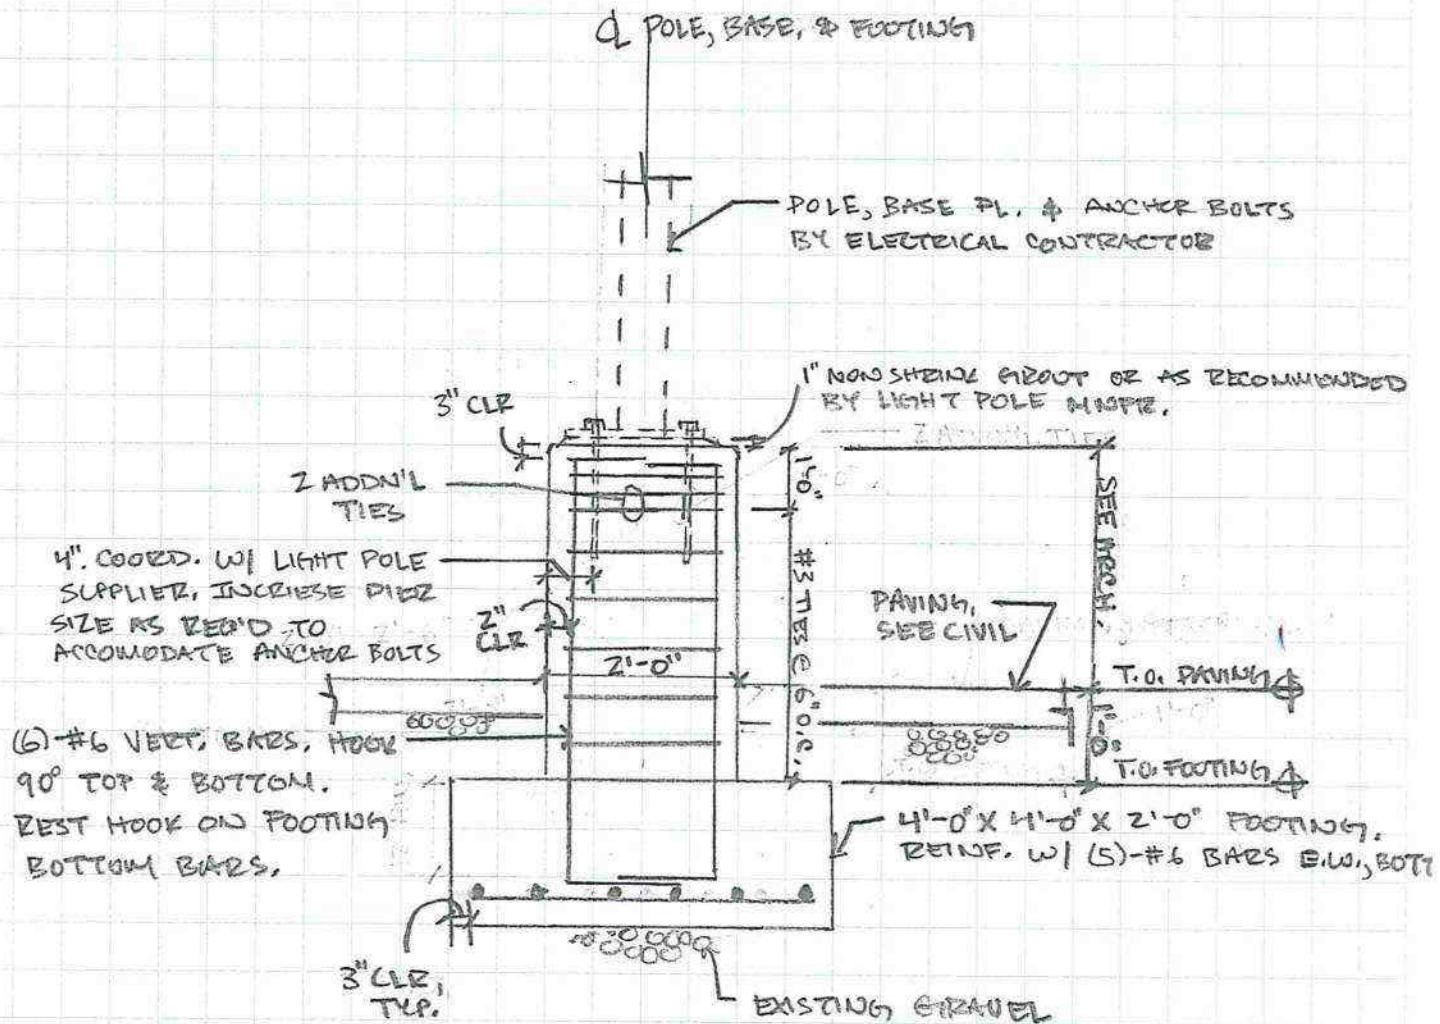 ℄ POLE, BASE, & FOOTING
POLE, BASE PL. & ANCHOR BOLTS
BY ELECTRICAL CONTRACTOR
1" NON SHRINK GROUT OR AS RECOMMENDED
BY LIGHT POLE MNFR.
3" CLR
2 ADDN'L
TIES
1'-0"
SEE ARCH.
4". COORD. W/ LIGHT POLE
SUPPLIER, INCRIESE PIER
SIZE AS REQ'D TO
ACCOMODATE ANCHOR BOLTS
2"
CLR
2'-0"
#3 TIES @ 6" O.C.
PAVING,
SEE CIVIL
T.O. PAVING
1'-0"
T.O. FOOTING
(6)-#6 VERT. BARS, HOOK
90° TOP & BOTTOM.
REST HOOK ON FOOTING
BOTTOM BARS.
4'-0" X 4'-0" X 2'-0" FOOTING.
REINF. W/ (5)-#6 BARS E.W., BOTT
3" CLR,
TYP.
EXISTING GRAVEL